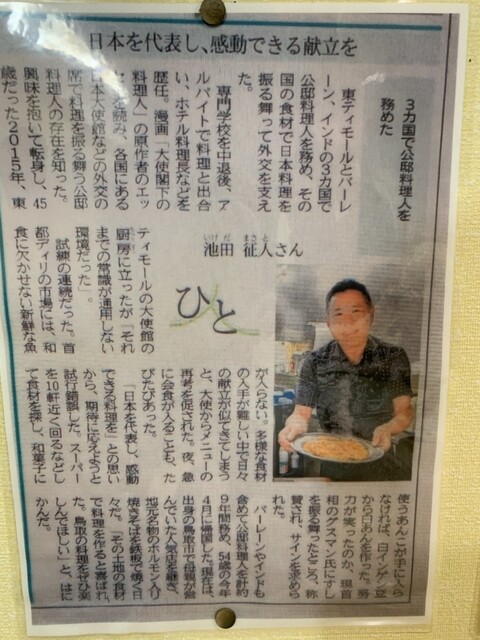 日本を代表し、感動できる献立を
3カ国で公邸料理人を
務めた
池田 征人さん
いけだ まさと
ひと
東ティモールとバーレ
ーン、インドの3カ国で
公邸料理人を務め、その
国の食材で日本料理を
振る舞って外交を支え
た。
専門学校を中退後、ア
ルバイトで料理と出合
い、ホテル料理長などを
歴任。漫画「大使閣下の
料理人」の原作者のエッ
セーを読み、各国にある
日本大使館などの外交の
席で料理を振る舞う公邸
料理人の存在を知った。
興味を抱いて転身し、45
歳だった2015年、東
ティモールの大使館の
厨房に立ったが「それ
までの常識が通用しない
環境だった」。
試練の連続だった。首
都ディリの市場には、和
食に欠かせない新鮮な魚
が入らない。多様な食材
の入手が難しい中で日々
の献立が似てきてしまう
と、大使からメニューの
再考を促された。夜、急
に会食が入ることも、た
びたびあった。
「日本を代表し、感動
できる料理を」との思い
から、期待に応えようと
試行錯誤した。スーパー
を10軒近く回るなどし
て食材を探し、和菓子に
使うあんこが手に入ら
なければ、白インゲン豆
から白あんを作った。努
力が実ったのか、現首
相のグスマン氏にすし
を振る舞ったところ、称
賛され、サインを求めら
れた。
バーレーンやインドも
含めて公邸料理人を計約
9年間務め、54歳の今年
4月に帰国した。現在は、
出身の鳥取市で母親が営
んでいた人気店を継ぎ、
地元名物のホルモン入り
焼きそばを鉄板で焼く日
々だ。「その土地の食材
で料理を作ると喜ばれ
た。鳥取の料理をぜひ楽
しんでほしい」と、はに
かんだ。